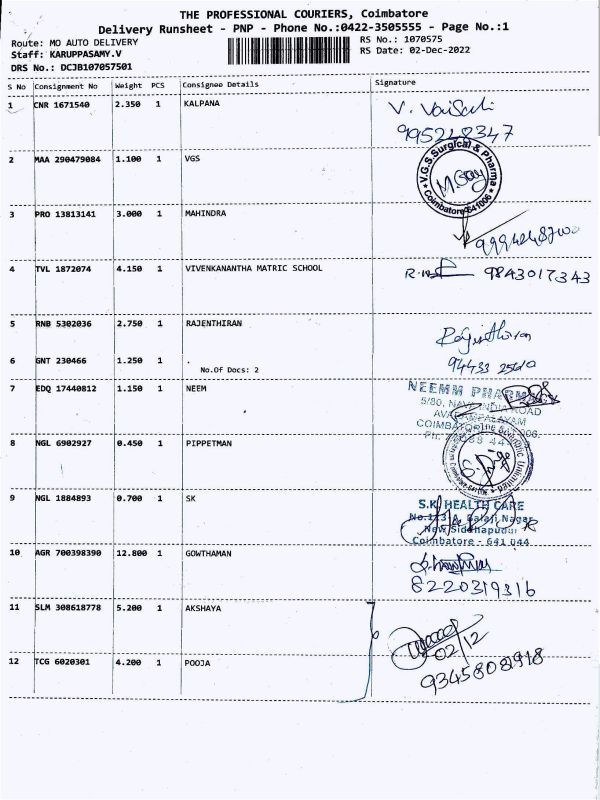 THE PROFESSIONAL COURIERS, Coimbatore
Delivery Runsheet - PNP - Phone No.:0422-3505555 - Page No.:1
Route: MO AUTO DELIVERY
RS No.: 1070575
Staff: KARUPPASAMY.V
RS Date: 02-Dec-2022
DRS No.: DCJB107057501
S No Consignment No Weight PCS Consignee Details Signature
1 CNR 1671540 2.350 1 KALPANA
2 MAA 290479084 1.100 1 VGS
V.G.S.Surgical & Pharma
Coimbatore-641006
3 PRO 13813141 3.000 1 MAHINDRA
4 TVL 1872074 4.150 1 VIVENKANANTHA MATRIC SCHOOL
9843017343
5 RNB 5302036 2.750 1 RAJENTHIRAN
6 GNT 230466 1.250 1 .
No.Of Docs: 2
7 EDQ 17440812 1.150 1 NEEM
NEEMM PHARMA
5/80, NAVA INDIA ROAD
AVARAMPALAYAM
8 NGL 6902927 0.450 1 PIPPETMAN
9 NGL 1884893 0.700 1 SK
S.K. HEALTH CARE
Balaji Nagar
New Siddhapudur
Coimbatore - 641 044
10 AGR 700398390 12.800 1 GOWTHAMAN
8220319316
11 SLM 308618778 5.200 1 AKSHAYA
02/12
12 TCG 6020301 4.200 1 POOJA
9345808918